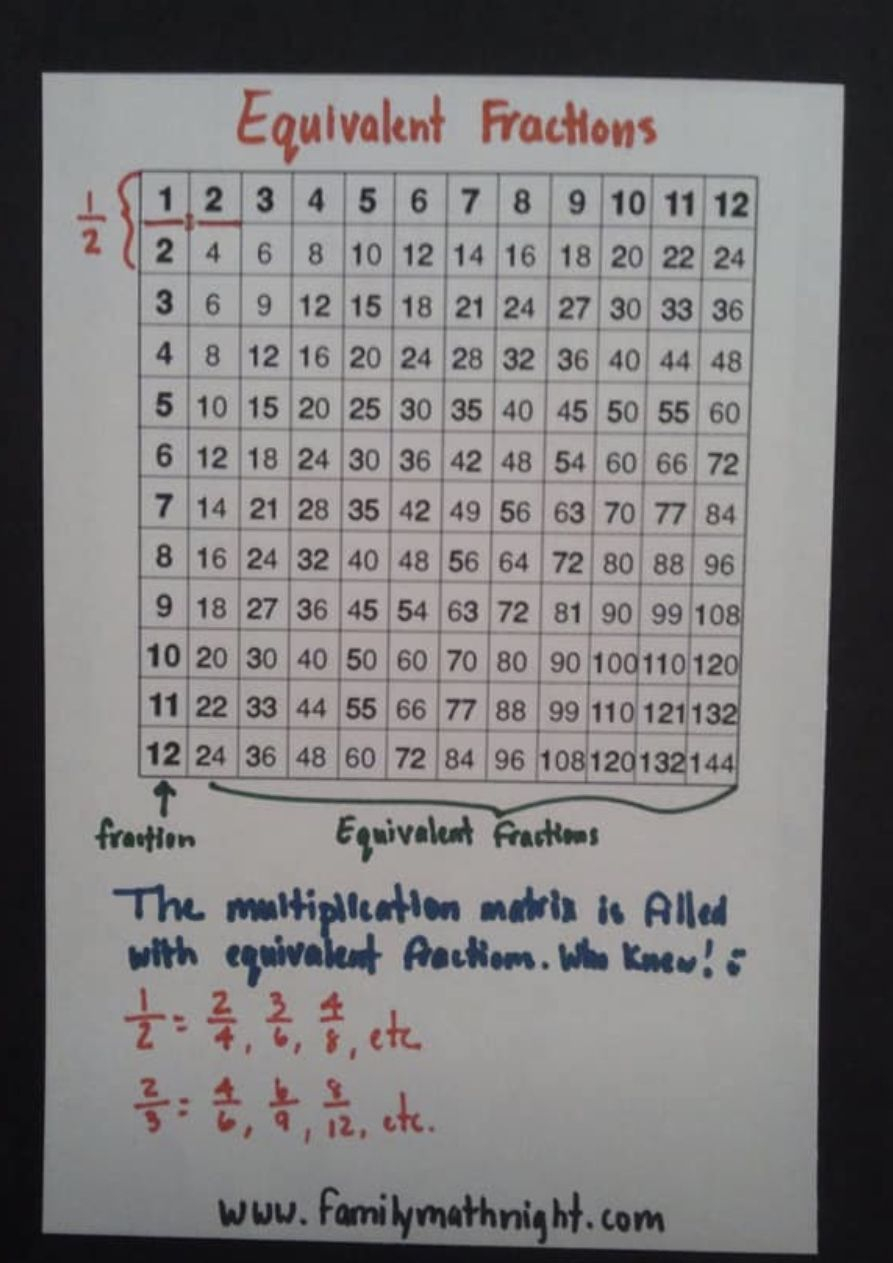 Equivalent Fractions
1/2
1 2 3 4 5 6 7 8 9 10 11 12
2 4 6 8 10 12 14 16 18 20 22 24
3 6 9 12 15 18 21 24 27 30 33 36
4 8 12 16 20 24 28 32 36 40 44 48
5 10 15 20 25 30 35 40 45 50 55 60
6 12 18 24 30 36 42 48 54 60 66 72
7 14 21 28 35 42 49 56 63 70 77 84
8 16 24 32 40 48 56 64 72 80 88 96
9 18 27 36 45 54 63 72 81 90 99 108
10 20 30 40 50 60 70 80 90 100 110 120
11 22 33 44 55 66 77 88 99 110 121 132
12 24 36 48 60 72 84 96 108 120 132 144
fraction Equivalent Fractions
The multiplication matrix is filled
with equivalent fractions. Who Knew!
1/2 = 2/4, 3/6, 4/8, etc
2/3 = 4/6, 6/9, 8/12, etc.
www.familymathnight.com